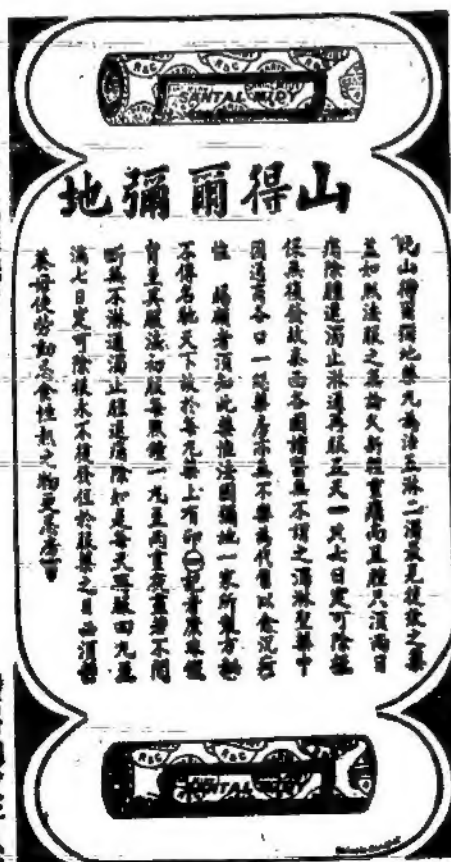 SANTAL MIDY
山得爾彌地
此山得爾彌地藥丸為治五淋二濁最見靈效之藥
如照法服之無論久新輕重痛而且腫只須兩日
痛除腫退濁止淋通再服五天一共七日定可除根
保無復發故泰西各國諸醫無不謂之濁淋聖藥中
國通商各口一經藥房亦無不樂為代售以
賜顧者須知此藥惟法國彌地一家所製方
不傳名馳天下故於每丸藥上有印
至其服法初服每點鐘一丸至病重者不間
斷無不淋通濁止腫退痛除如是每天照服四丸至
滿七日定可除根永不復發但於服藥之日必須靜
養毋使勞動忌食性熱之物更忌房事
SANTAL MIDY